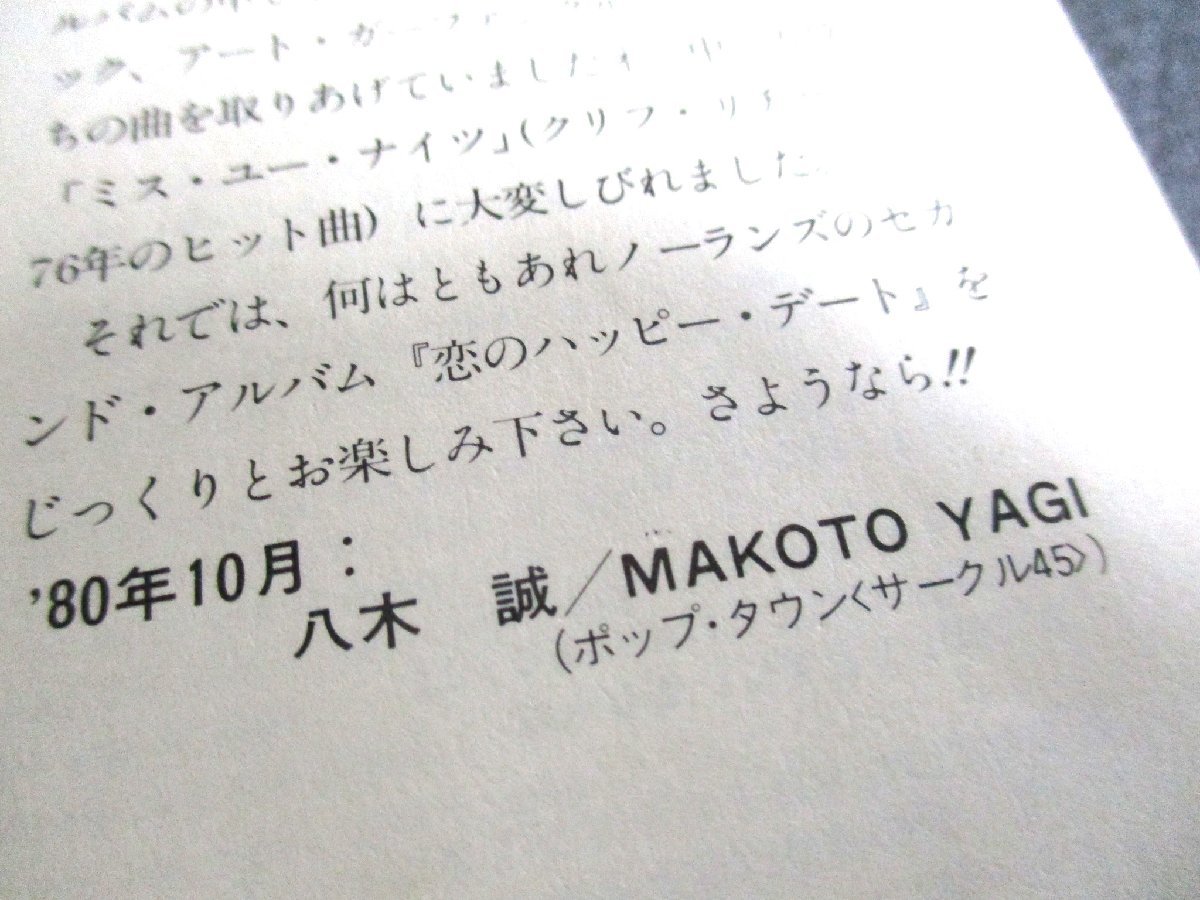 ルバムの中で
ック、アート・ガーファンクル
ちの曲を取りあげていましたが、中
「ミス・ユー・ナイツ」(クリフ・リチャー
76年のヒット曲)に大変しびれました。
それでは、何はともあれノーランズのセカ
ンド・アルバム『恋のハッピー・デート』を
じっくりとお楽しみ下さい。さようなら!!
'80年10月:
八木 誠/MAKOTO YAGI
(ポップ・タウン〈サークル45〉)